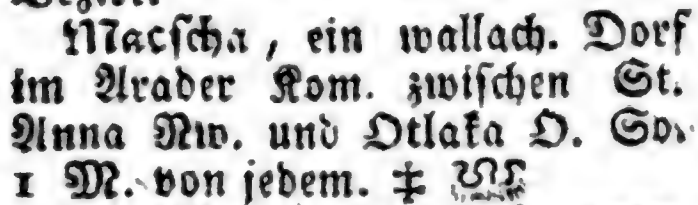 Macſcha, ein wallach. Dorf
im Arader Kom. zwiſchen St.
Anna Nw. und Otlaka O. So.
1 M. von jedem. ‡